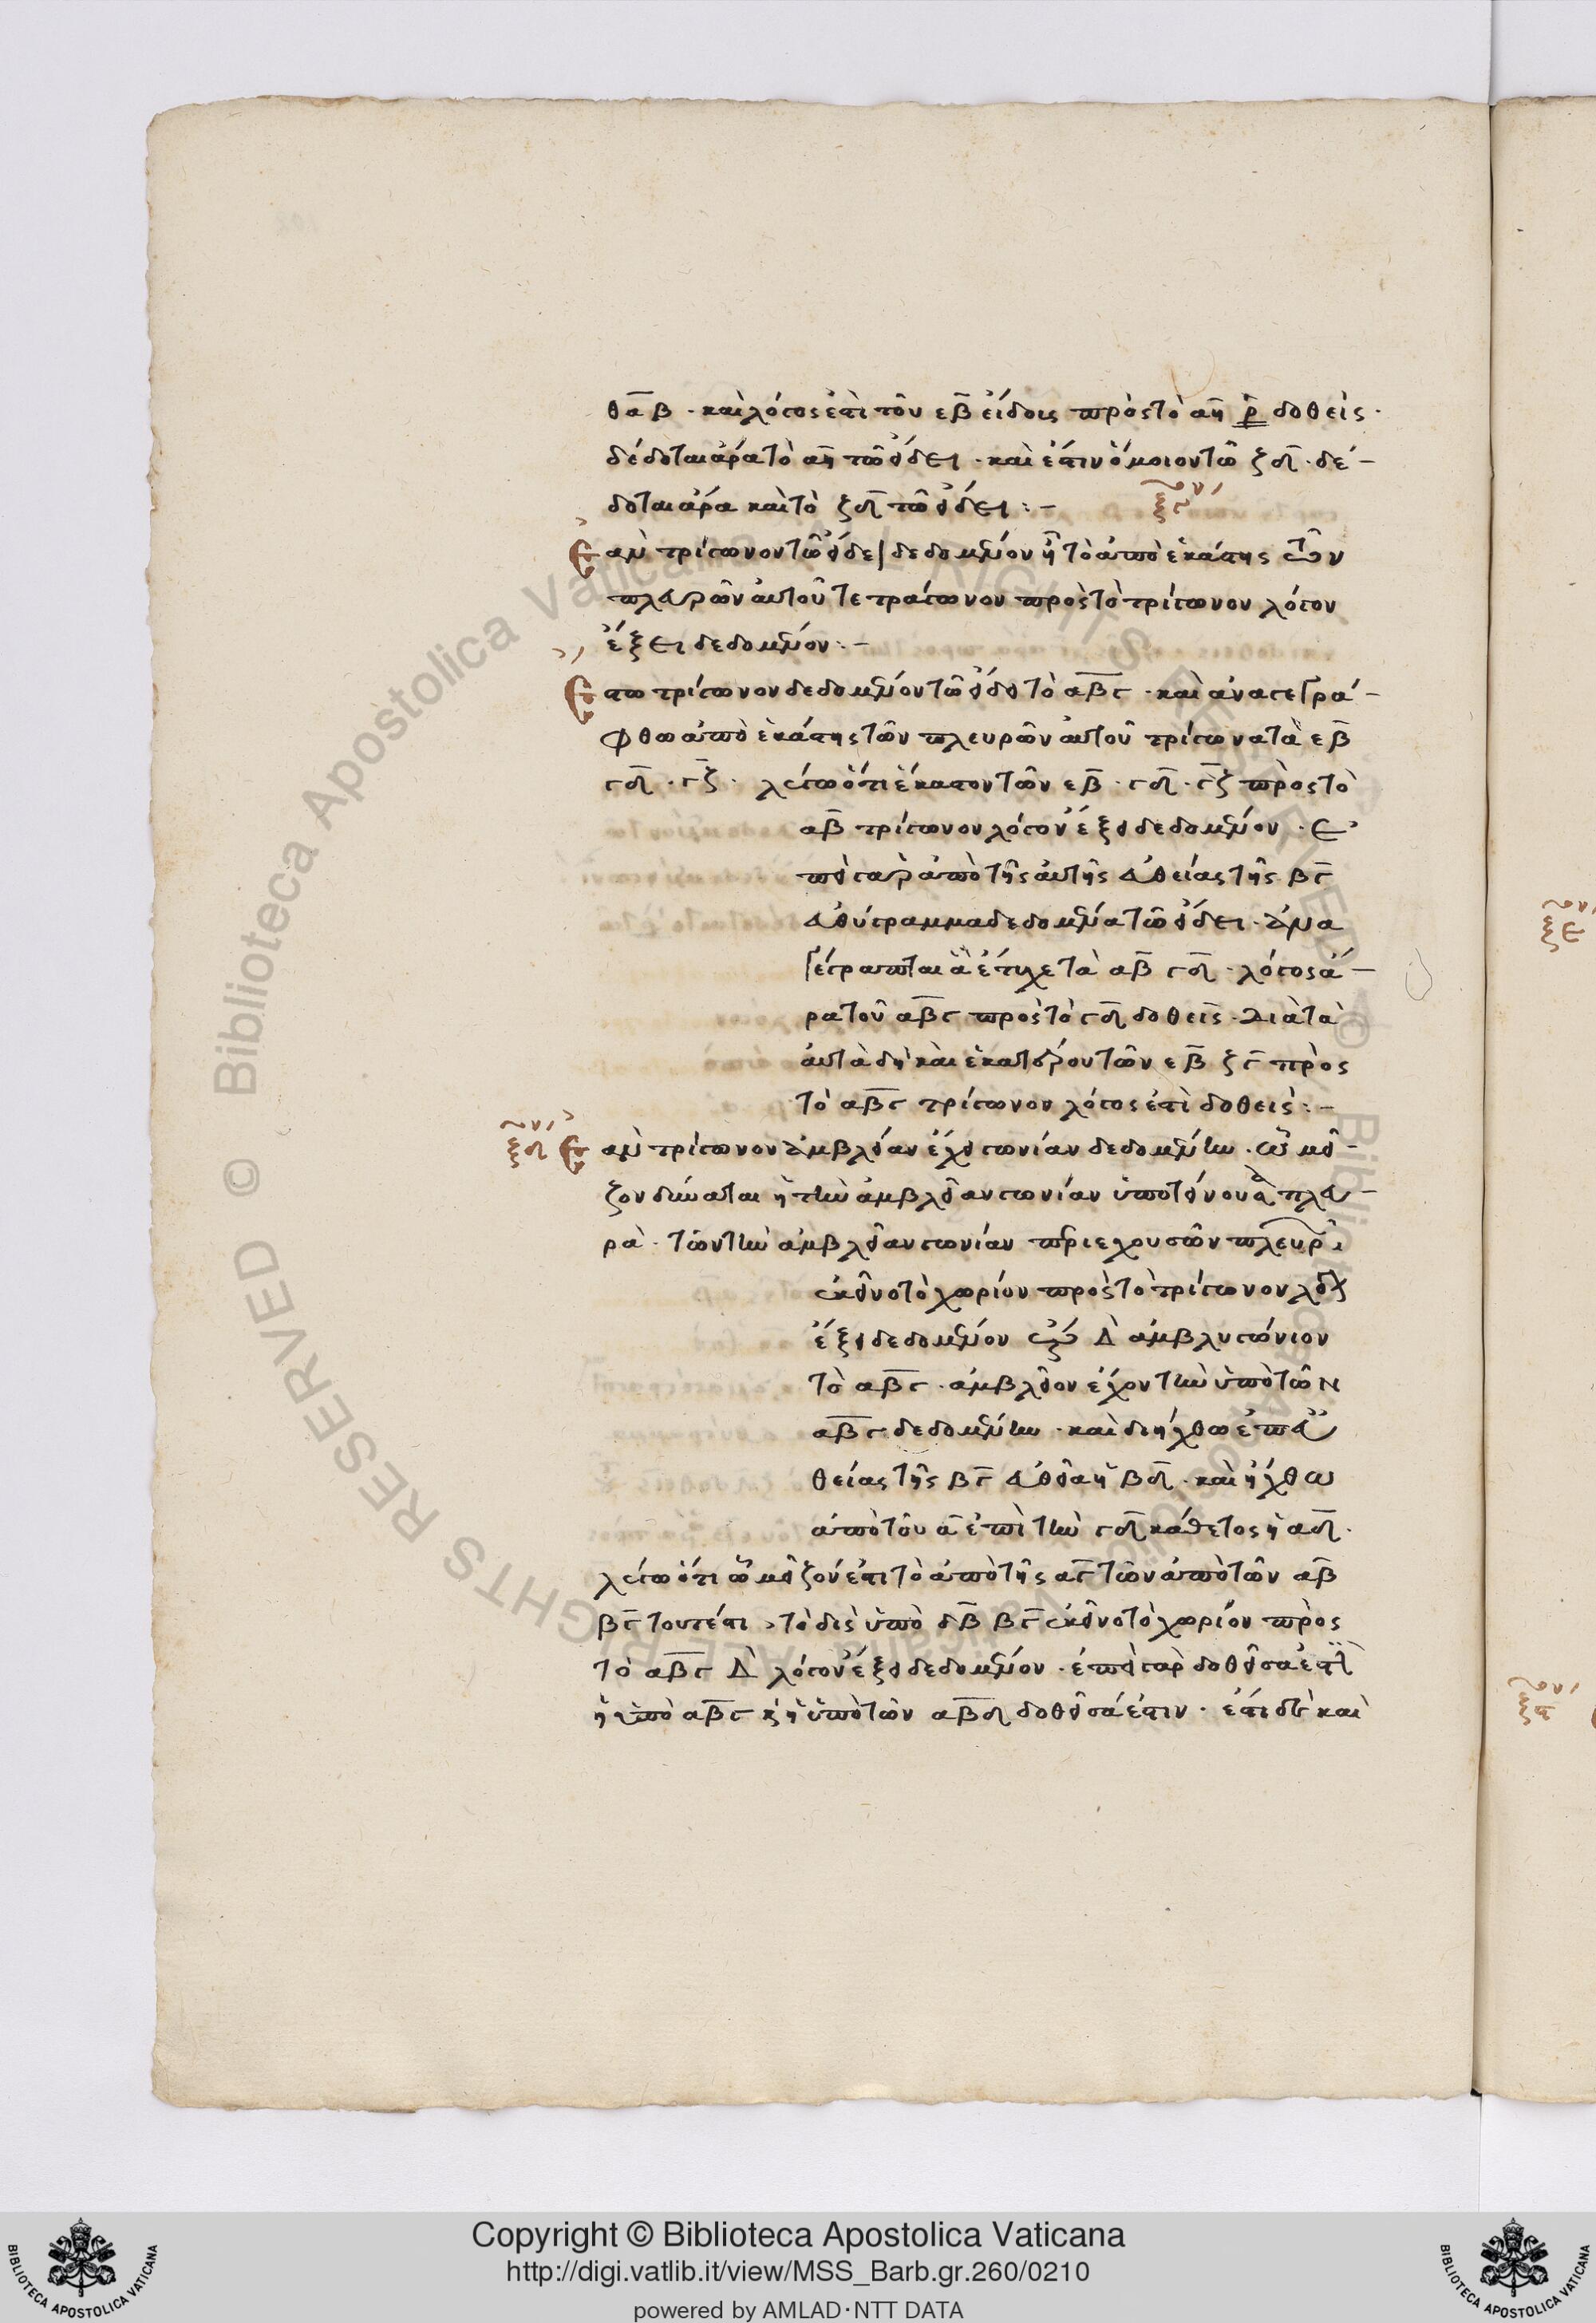 θα β · καὶ λόγος ἐστὶ τοῦ εβ εἴδους πρὸς τὸ αη δοθείς ·
δέδοται ἄρα τὸ αη τῶ εἴδει · καὶ ἔστιν ὅμοιον τῶ ζδ · δέ-
δοται ἄρα καὶ τὸ ζδ τῶ εἴδει :-
Ἐὰν τρίγωνον τῶ εἴδει δεδομένον ἦ τὸ ἀπὸ ἑκάστης τῶν
πλευρῶν αὐτοῦ τετράγωνον πρὸς τὸ τρίγωνον λόγον
ἕξει δεδομένον :-
Ἔστω τρίγωνον δεδομένον τῶ εἴδει τὸ αβγ · καὶ ἀναγεγρά-
φθω ἀπὸ ἑκάστης τῶν πλευρῶν αὐτοῦ τρίγωνα τὰ εβ
γδ · γζ · λέγω ὅτι ἕκαστον τῶν εβ · γδ · γζ πρὸς τὸ
αβ τρίγωνον λόγον ἕξει δεδομένον · ἐ
πεὶ γὰρ ἀπὸ τῆς αὐτῆς εὐθείας τῆς βγ
εὐθύγραμμα δεδομένα τῶ εἴδει ·
γέγραπται ἃ ἔτυχε τὰ αβ γδ · λόγος ἄ-
ρα τοῦ αβγ πρὸς τὸ γδ δοθείς · διὰ τὰ
αὐτὰ δὴ καὶ ἑκατέρου τῶν εβ ζγ πρὸς
τὸ αβγ τρίγωνον λόγος ἐστὶ δοθείς :-
ξδ Ἐὰν τρίγωνον ἀμβλεῖαν ἔχει γωνίαν δεδομένην · ὧ μεῖ-
ζον δύναται ἡ τὴν ἀμβλεῖαν γωνίαν ὑποτείνουσα πλευ-
ρὰ · τῶν τὴν ἀμβλεῖαν γωνίαν περιεχουσῶν πλευρῶν
ἐκεῖνο τὸ χωρίον πρὸς τὸ τρίγωνον λόγον
ἕξει δεδομένον ἀμβλυγώνιον
τὸ αβγ · ἀμβλεῖον ἔχον τὴν ὑπὸ τῶν
αβγ δεδομένην · καὶ διήχθω ἐπ' εὐ
θείας τῆς βγ εὐθεῖα ἡ βδ · καὶ ἤχθω
ἀπὸ τοῦ α ἐπὶ τὴν γδ κάθετος ἡ αδ ·
λέγω ὅτι ὧ μεῖζόν ἐστι τὸ ἀπὸ τῆς αγ τῶν ἀπὸ τῶν αβ
βγ τουτέστι τὸ δὶς ὑπὸ δβ βγ ἐκεῖνο τὸ χωρίον πρὸς
τὸ αβγ λόγον ἕξει δεδομένον · ἐπεὶ γὰρ δοθεῖσα ἐστὶ
ἡ ὑπὸ αβγ καὶ ἡ ὑπὸ τῶν αβδ δοθεῖσά ἐστιν · ἔστι δὲ καὶ
Copyright © Biblioteca Apostolica Vaticana
http://digi.vatlib.it/view/MSS_Barb.gr.260/0210
powered by AMLAD·NTT DATA
BIBLIOTECA APOSTOLICA VATICANA
BIBLIOTECA APOSTOLICA VATICANA